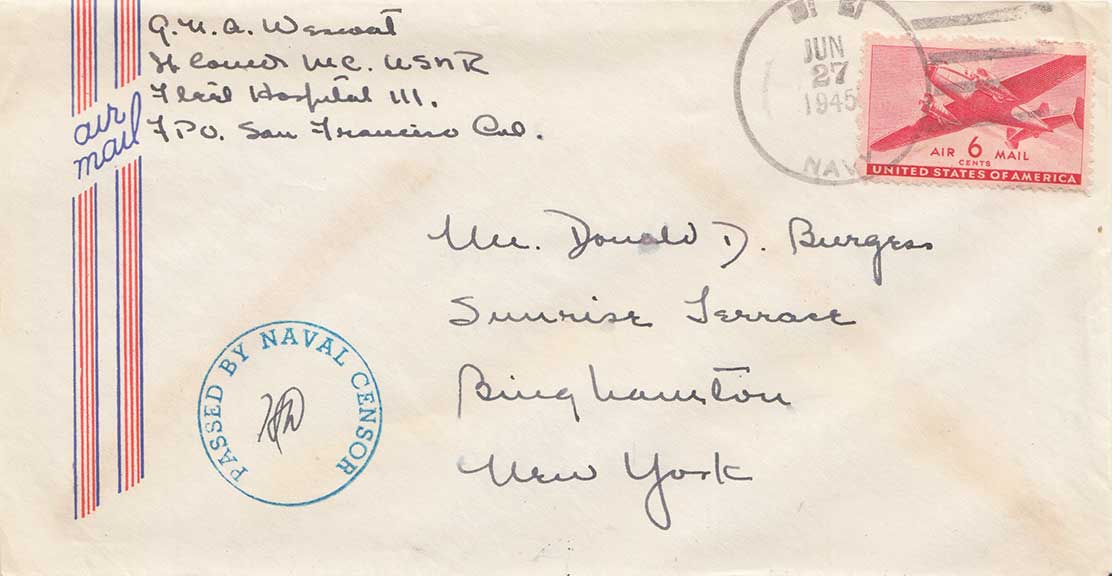 G. N. A. Westcott
Lt Comdr MC. USNR
Fleet Hospital 111.
FPO. San Francisco Cal.
air
mail
JUN
27
1945
NAVY
AIR 6 MAIL
CENTS
UNITED STATES OF AMERICA
Mr. Donald D. Burgess
Sunrise Terrace
Binghamton
New York
PASSED BY NAVAL CENSOR